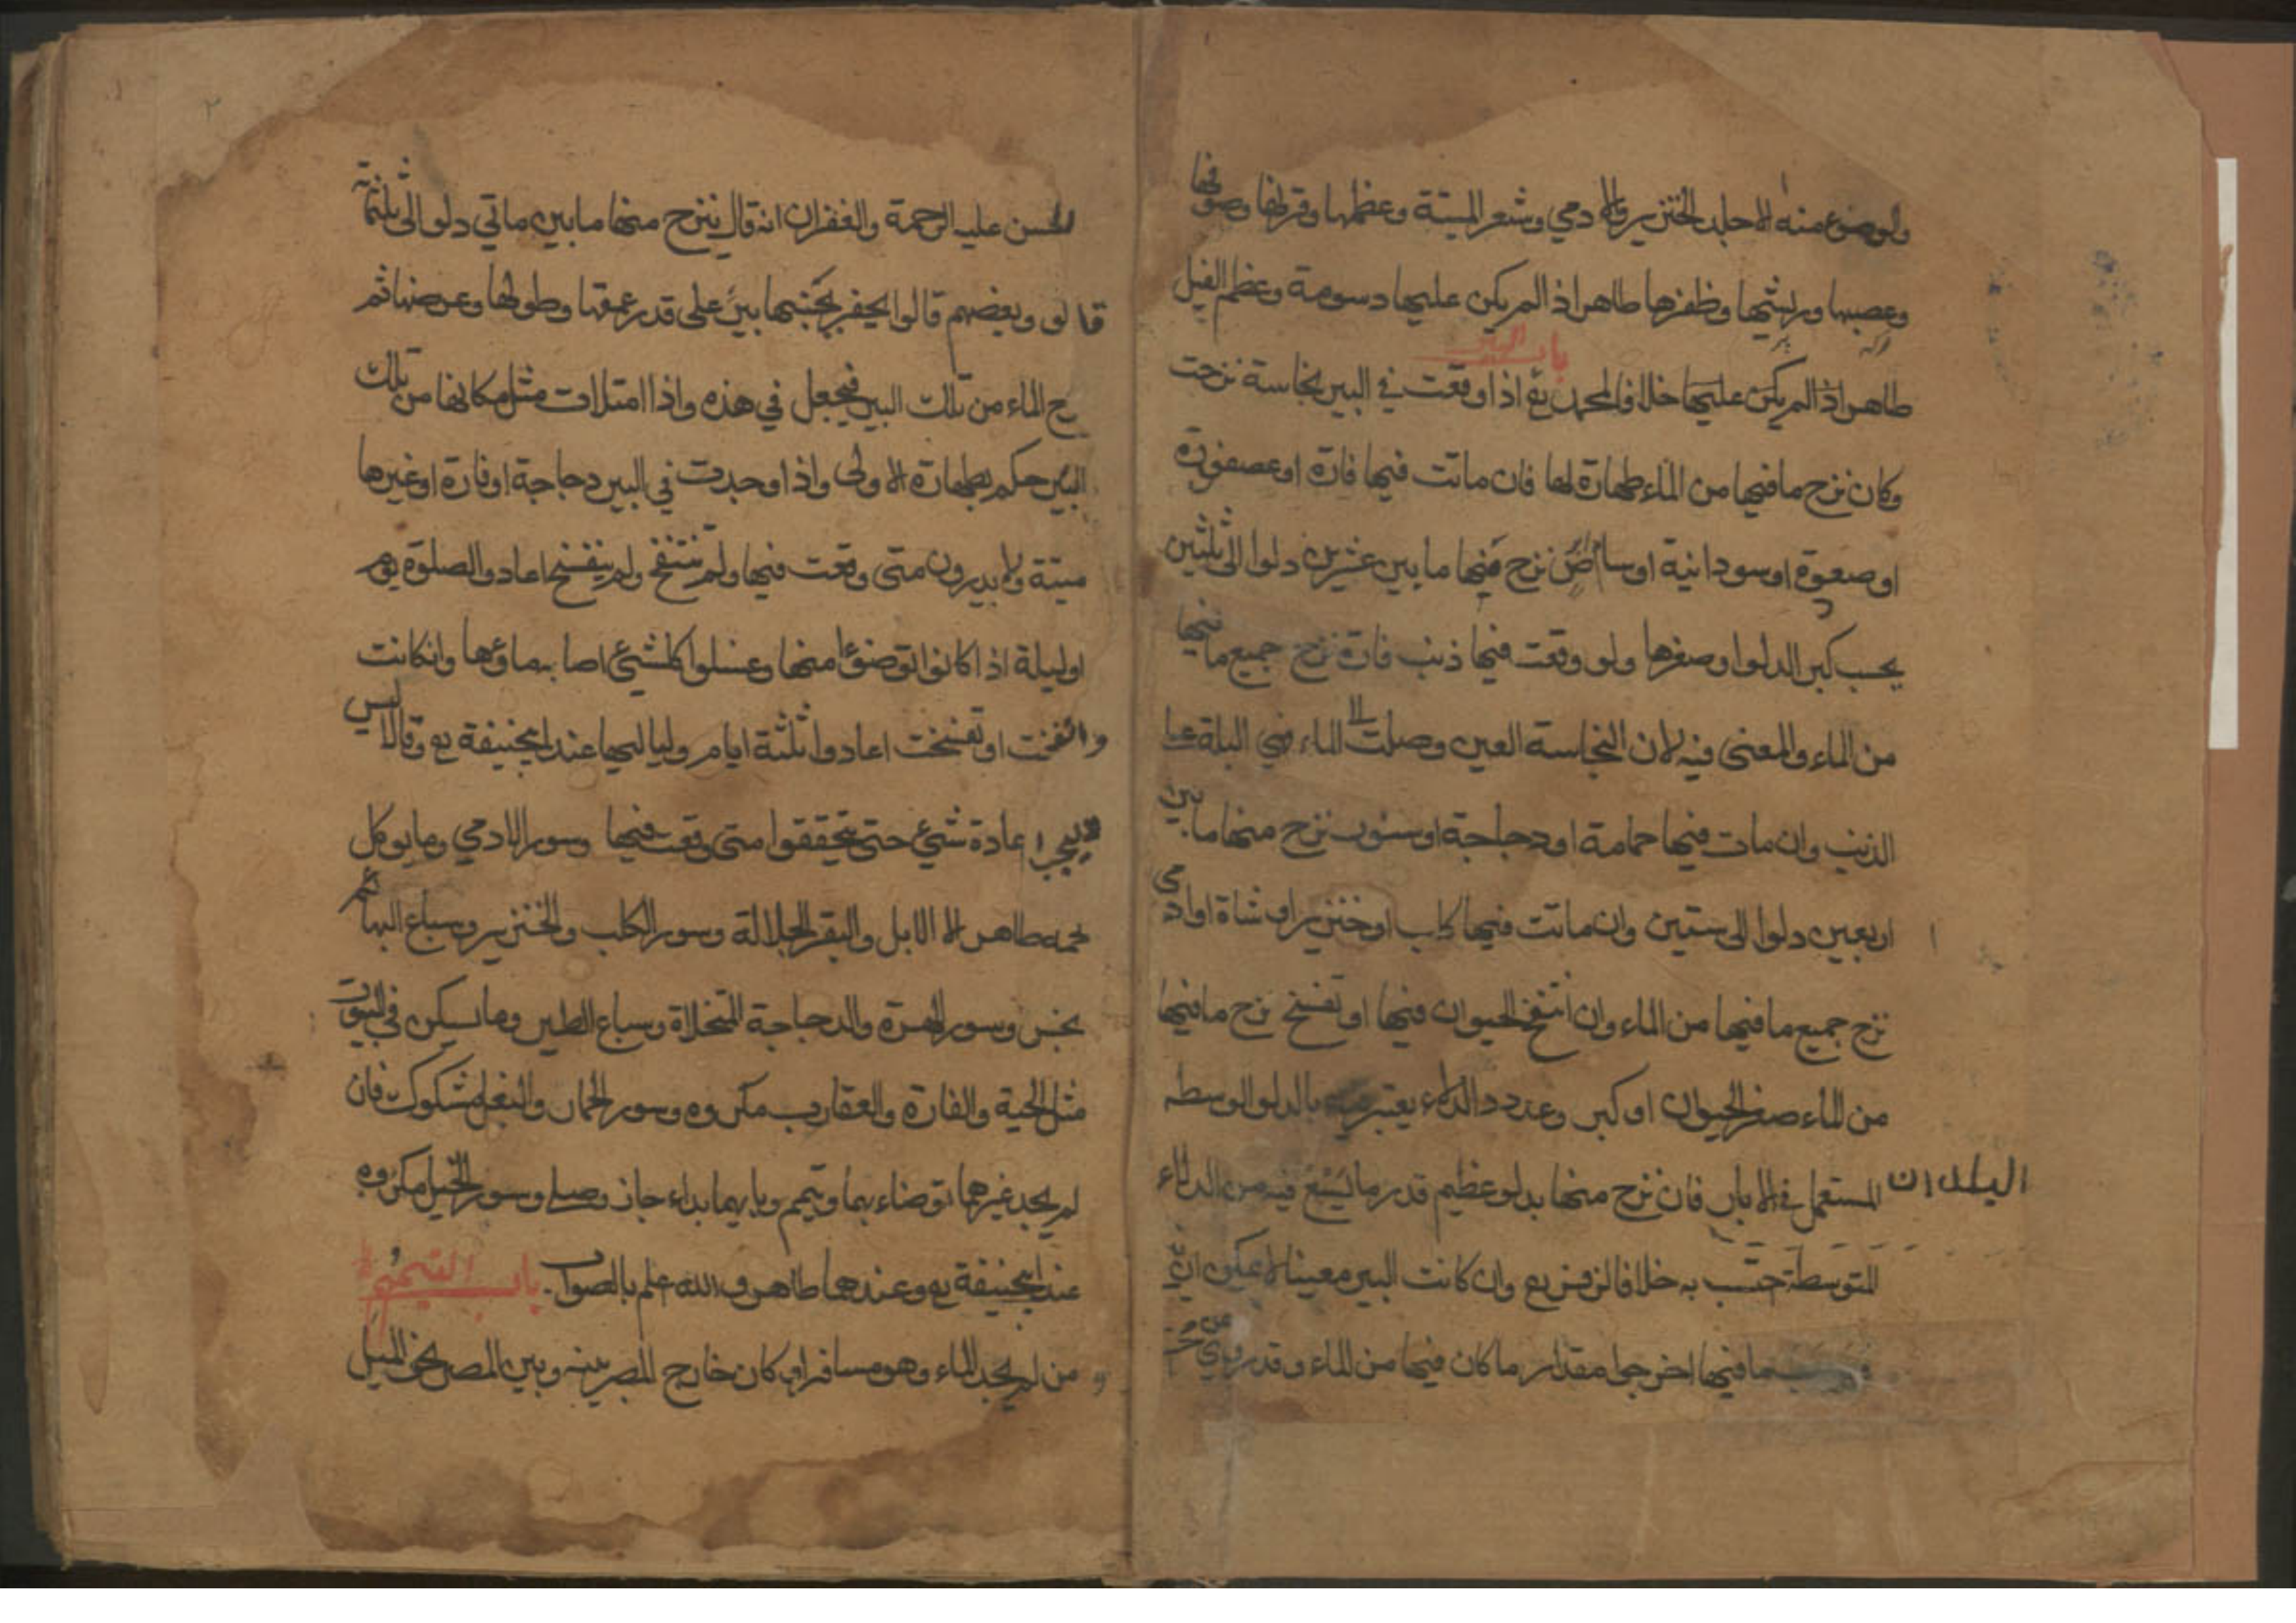 والوضوء منه الا جلد الخنزير والادمي وشعر الميتة وعظمها وقرنها وصوفها
وعصبها وريشها وظفرها طاهر اذا لم يكن عليها دسومة وعظم الفيل
باب البير
طاهر اذا لم يكن عليها خلافا لمحمد رح اذا وقعت في البير نجاسة نزحت
وكان نزح ما فيها من الماء طهارة لها فان ماتت فيها فارة او عصفورة
او صعوة او سودانية او سام ابرص نزح منها ما بين عشرين دلوا الى ثلثين
بحسب كبر الدلو او صغرها ولو وقعت فيها ذنب فارة نزح جميع ما فيها
من الماء والمعنى فيه لان النجاسة العين وصلت الى الماء وهي البلة على
الذنب وان مات فيها حمامة او دجاجة او سنور نزح منها ما بين
اربعين دلوا الى ستين وان ماتت فيها كلب او خنزير او شاة او ادمي
نزح جميع ما فيها من الماء وان انتفخ الحيوان فيها او تفسخ نزح ما فيها
من الماء صغر الحيوان او كبر وعدد الدلاء يعتبر فيه بالدلو الوسطه
المستعمل في الابار البلدان فان نزح منها بدلو عظيم قدر ما يسع فيه من الدلاء
المتوسطة حتسب به خلافا لزفر رح وان كانت البير معينا لا يمكن ان
ما فيها اخرجوا مقدار ما كان فيها من الماء وقد روي عن
الحسن عليه الرحمة والغفران انه قال ينزح منها ما بين ماتي دلو الى ثلثمائة
قالو وبعضهم قالوا يحفر بجنبها بير على قدر عمقها وطولها وعرضها ثم
الماء من تلك البير فيجعل في هذه واذا امتلات مثل مكانها من تلك
البير حكم بطهارة الاولى واذا وجدت في البير دجاجة او فارة او غيرها
ميتة ولا يدرون متى وقعت فيها ولم تنتفخ ولم يتفسخ اعادوا الصلوة يوم
او ليلة اذا كانوا توضؤا منها وغسلوا كل شيء اصابه ماؤها وان كانت
وانتفخت او تفسخت اعادوا ثلثة ايام ولياليها عند ابي حنيفة رح وقالا ليس
اعادة شيء حتى يتحققوا متى وقعت فيها وسور الادمي وما يوكل
لحمه طاهر الا الابل والبقر الجلالة وسور الكلب والخنزير وسباع البهائم
نجس وسور الهرة والدجاجة المخلاة وسباع الطير وما يسكن في البيوت
مثل الحية والفارة والعقارب مكروه وسور الحمار والبغل مشكوك فان
لم يجد غيرهما توضاء بهما ويتيمم وبايهما بداء جاز وصلى وسور الخيل مكروه
عند ابي حنيفة رح وعندهما طاهر والله اعلم بالصواب باب التيمم
ومن لم يجد الماء وهو مسافر او كان خارج المصر بينه وبين المصر نحو الميل